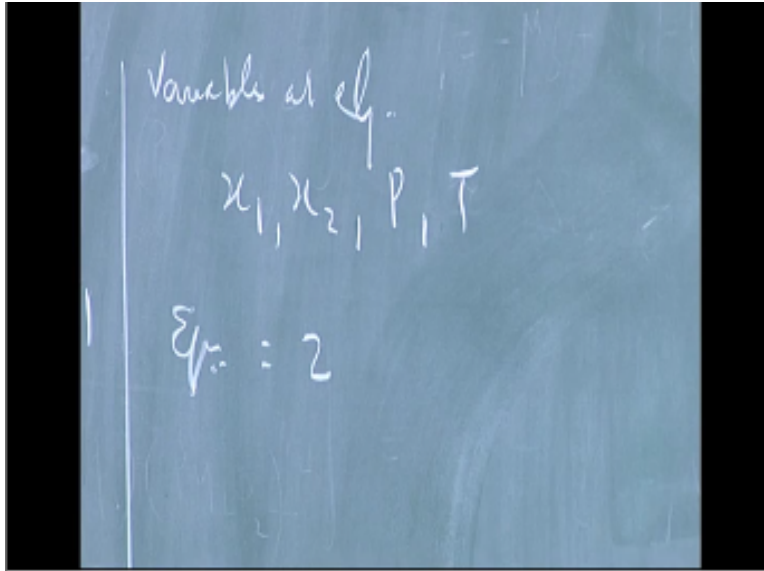 Variables at eq.
x₁, x₂, P, T
Eqn. : 2